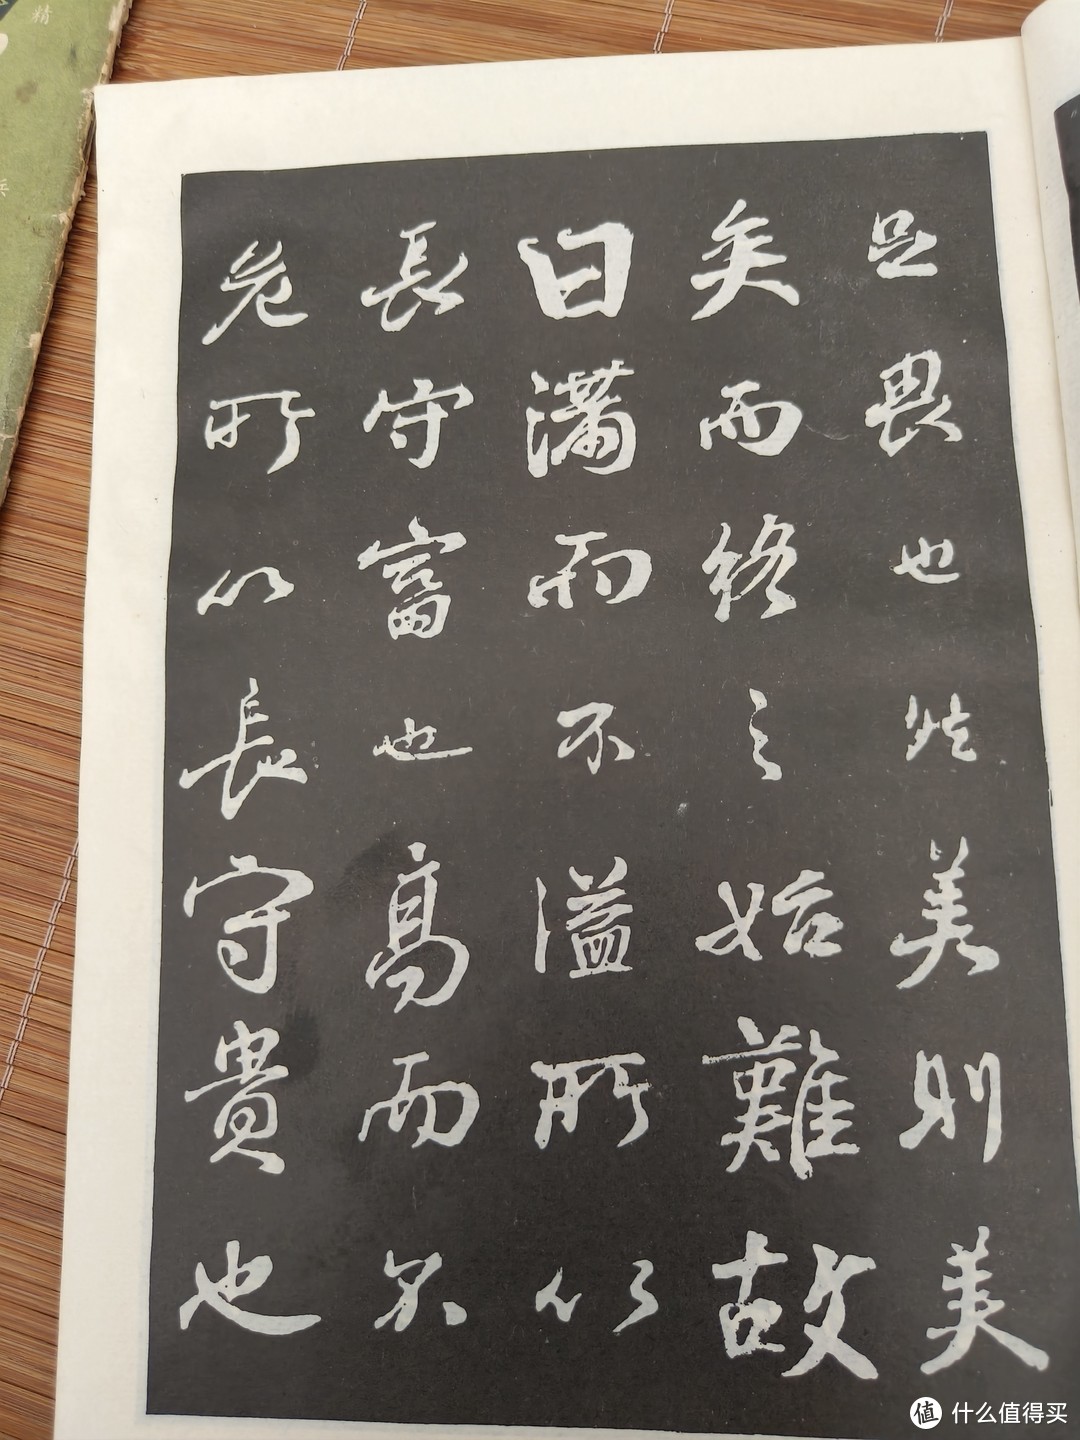 足畏也然美則美
矣而終之始難故
曰滿而不溢所以
長守富也高而不
危所以長守貴也
精
值 什么值得买